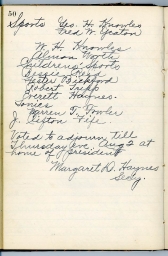 50
Sports Geo. H. Knowles
Fred W. Yeaton
W. H. Knowles
Alman North
Childrens Sports
Bessie Reed
Lester Bickford
Robert Tripp
Everett Haynes.
Warren T. Fowler
J. Liston Fife.
Voted to adjourn till
Thursday eve. Aug 2 at
home of President
Margaret D. Haynes
Secy.